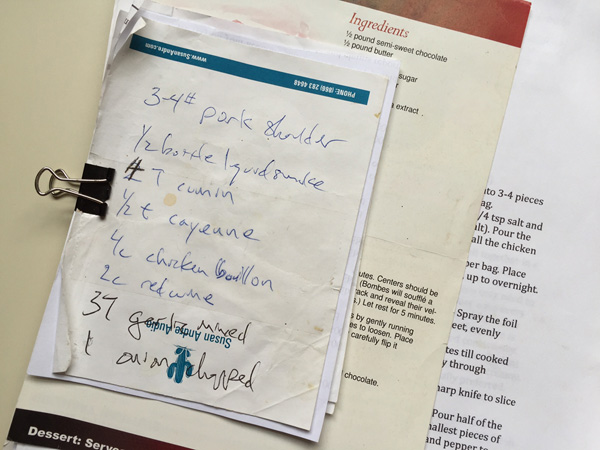 www.SusanAndre.com
PHONE: (866) 283 4848
3-4# pork shoulder
1/2 bottle liquid smoke
T cumin
1/2 t cayenne
4c chicken bouillon
2c red wine
3T garlic minced
Susan Andre Audio
1 onion chopped
Ingredients
½ pound semi-sweet chocolate
½ pound butter
sugar
extract
utes. Centers should be
(Bombes will soufflé a
ack and reveal their vel-
s.) Let rest for 5 minutes.
s by gently running
es to loosen. Place
carefully flip it
chocolate.
Dessert: Serve
nto 3-4 pieces
ag.
/4 tsp salt and
ult). Pour the
all the chicken
per bag. Place
up to overnight.
Spray the foil
eet, evenly
tes till cooked
y through
harp knife to slice
Pour half of the
mallest pieces of
and pepper to